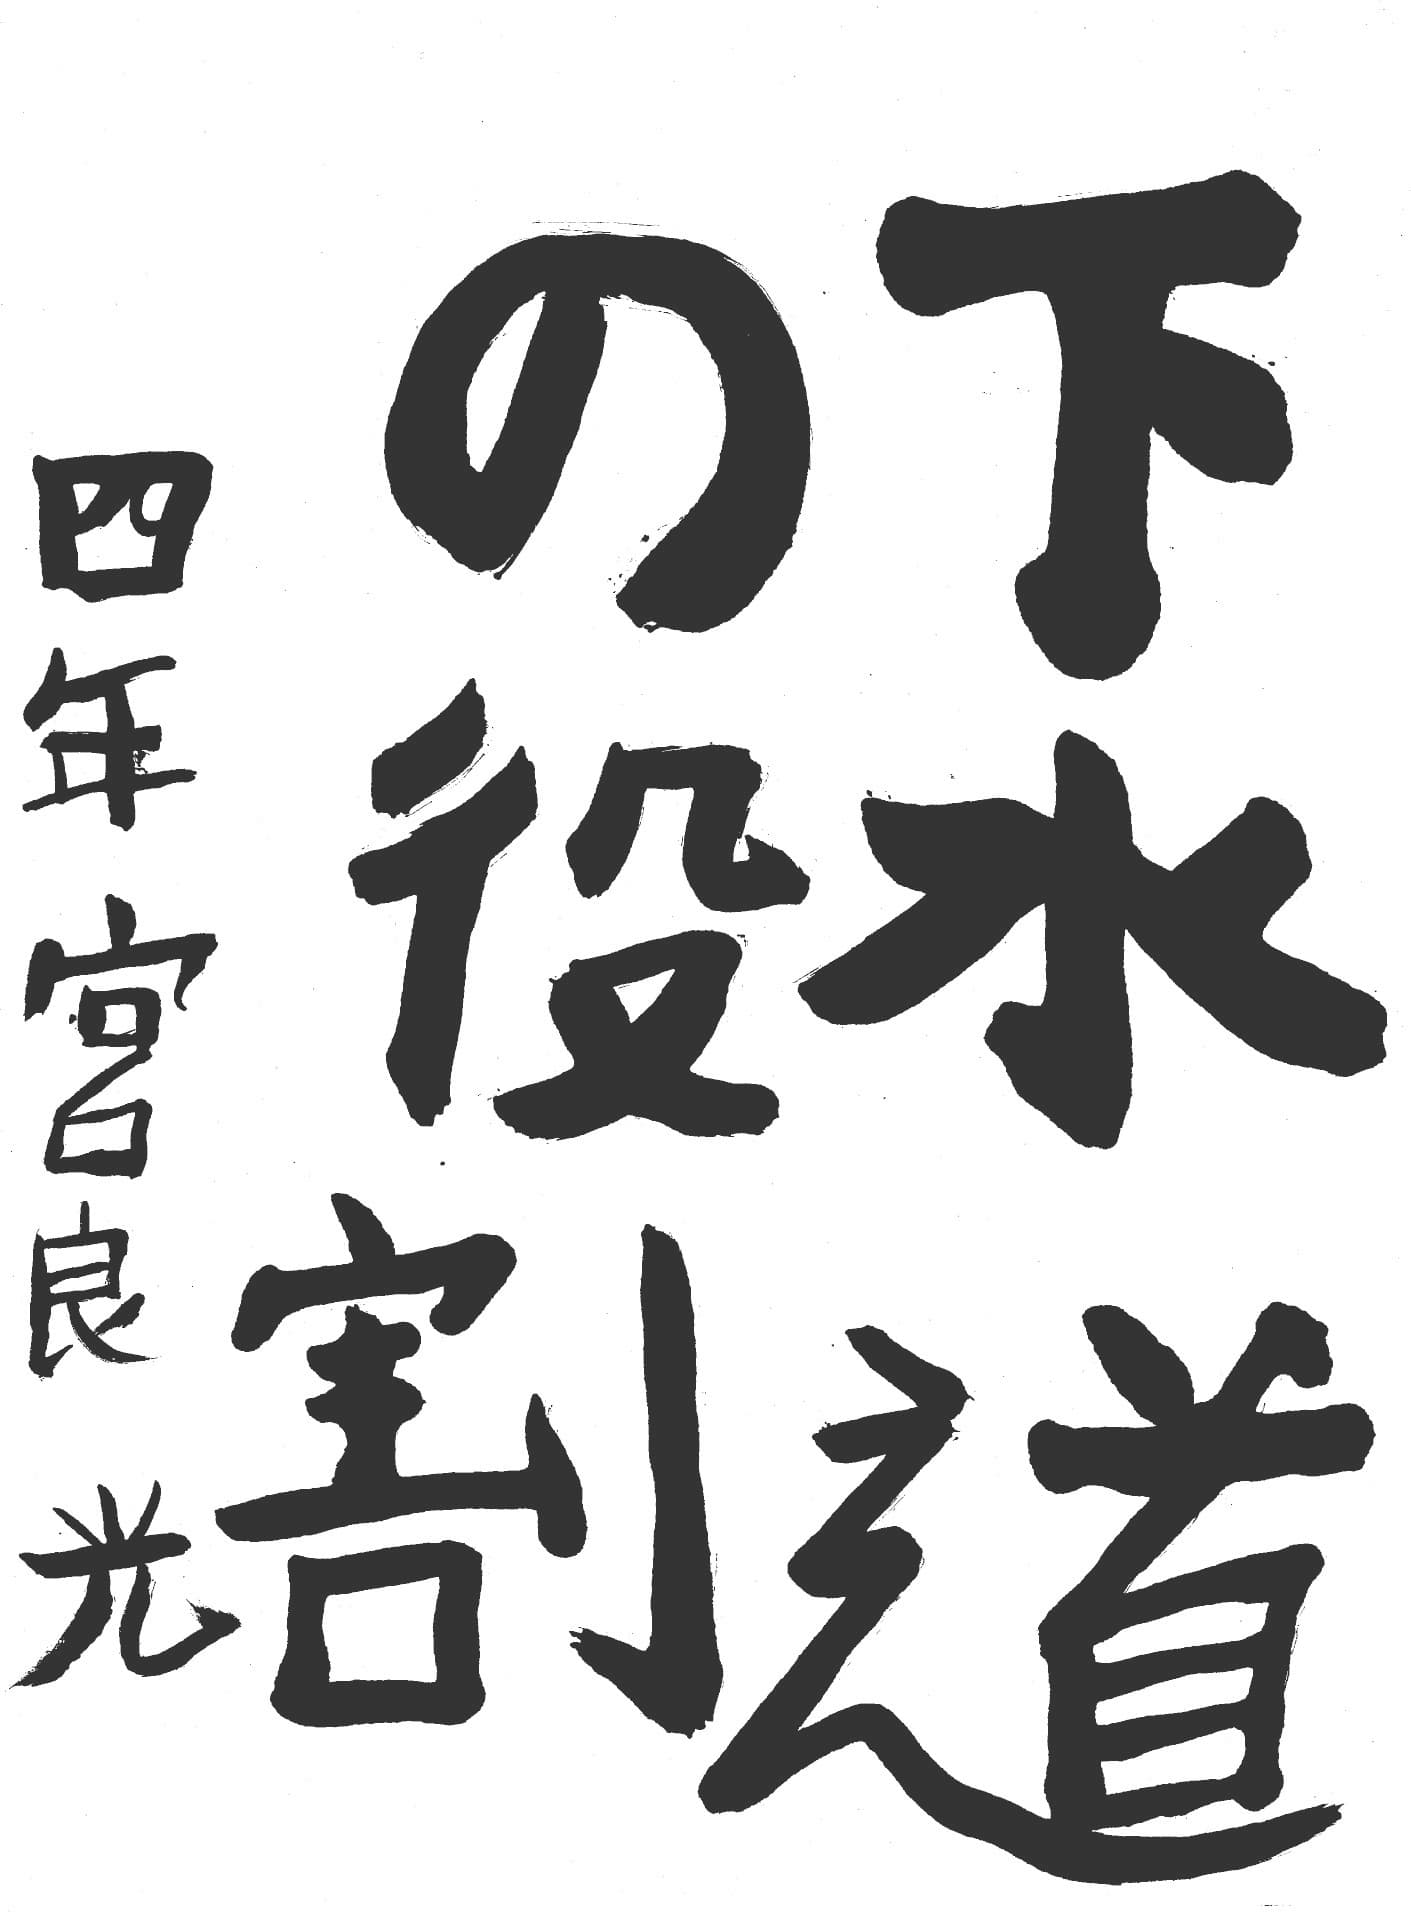 下水道
の役割
四年 宮良 光